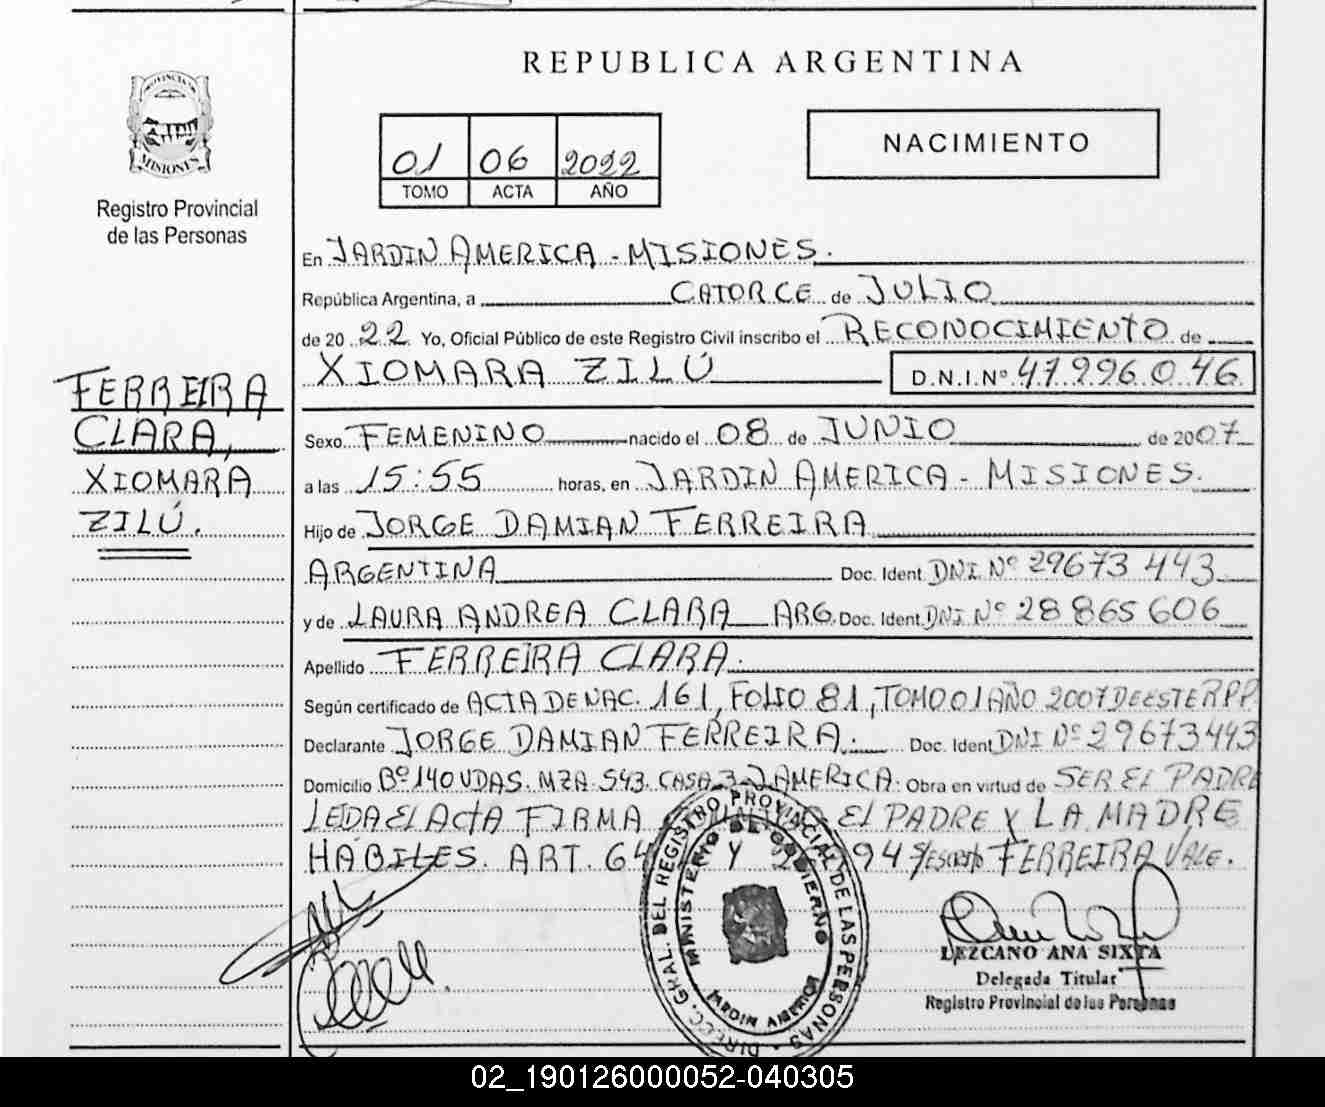 REPUBLICA ARGENTINA
PROVINCIA DE
MISIONES
Registro Provincial
de las Personas
01 06 2022
TOMO ACTA AÑO
NACIMIENTO
En JARDIN AMERICA - MISIONES.
República Argentina, a CATORCE de JULIO
de 20 22. Yo, Oficial Público de este Registro Civil inscribo el RECONOCIMIENTO de
XIOMARA ZILÚ D.N.I. Nº 47996046
FERREIRA
CLARA,
XIOMARA
ZILÚ.
Sexo FEMENINO nacido el 08 de JUNIO de 2007
a las 15:55 horas, en JARDIN AMERICA - MISIONES.
Hijo de JORGE DAMIAN FERREIRA
ARGENTINA Doc. Ident. DNI Nº 29673443
y de LAURA ANDREA CLARA ARG. Doc. Ident. DNI Nº 28865606
Apellido FERREIRA CLARA.
Según certificado de ACTA DE NAC. 161, FOLIO 81, TOMO 01 AÑO 2007 DE ESTE RPP
Declarante JORGE DAMIAN FERREIRA. Doc. Ident. DNI Nº 29673443
Domicilio Bº 140 VDAS. MZA. 543. CASA 3 J. AMERICA. Obra en virtud de SER EL PADRE
LEIDA EL ACTA FIRMA EL PADRE Y LA MADRE
HÁBILES. ART. 64 Y 94 FERREIRA VALE.
DIRECC. GRAL. DEL REGISTRO PROVINCIAL DE LAS PERSONAS
MINISTERIO DE GOBIERNO
JARDIN AMERICA
LEZCANO ANA SIXTA
Delegada Titular
Registro Provincial de las Personas
02_190126000052-040305